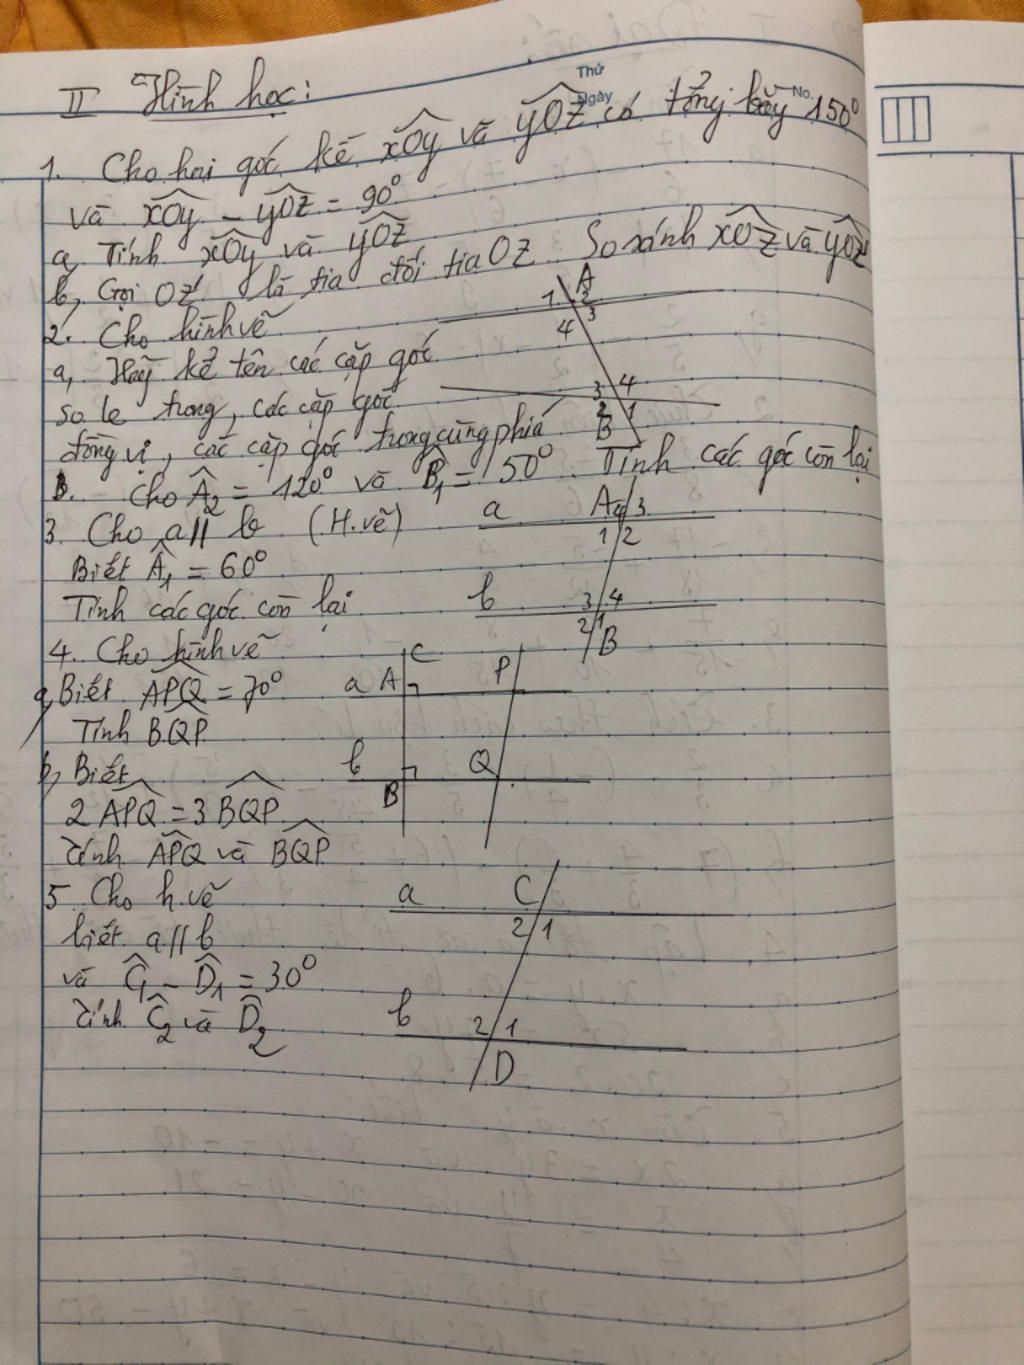 II Hình học:
Thứ
Ngày
No.
1. Cho hai góc kề xOy và yOz có tổng bằy 150°
và xOy - yOz = 90°
a, Tính xOy và yOz
b, Gọi Oz' là tia đối tia Oz. So sánh xOz và yOz'
2. Cho hình vẽ
a, Hãy kể tên các cặp góc
so le trong, các cặp góc
đồng vị, các cặp góc trong cùng phía
A
1 2
4 3
3 4
2 1
B
b. Cho A2 = 120° và B1 = 50° Tính các góc còn lại
3. Cho a // b (H.vẽ)
Biết A1 = 60°
Tính các góc còn lại
a A 4 3
1 2
b 3 4
2 1
B
4. Cho hình vẽ
a, Biết APQ = 70°
Tính BQP
b, Biết
2 APQ = 3 BQP
Tính APQ và BQP
C
a A P
b Q
B
5 Cho h.vẽ
biết a // b
và C1 - D1 = 30°
Tính C2 và D2
a C
2 1
b 2 1
D